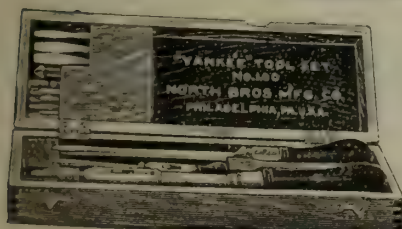 "YANKEE" TOOL SET
No. 100
NORTH BROS. MFG. CO.
PHILADELPHIA, PA. U.S.A.